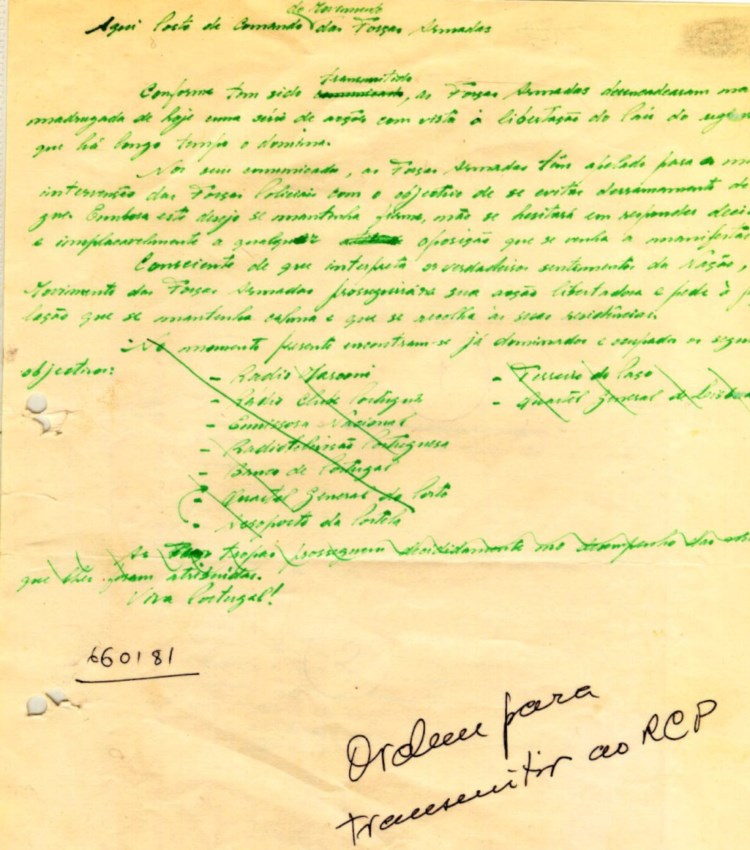 do Movimento
Aqui Posto de Comando das Forças Armadas
transmitido
Conforme tem sido comunicado, as Forças Armadas desencadearam na
madrugada de hoje uma série de acções com vista à libertação do País do regime
que há longo tempo o domina.
Nos seus comunicados, as Forças Armadas têm apelado para a não
intervenção das Forças Policiais com o objectivo de se evitar derramamento de
gue. Embora este desejo se mantenha firme, não se hesitará em responder deci
e implacavelmente a qualquer oposição que se venha a manifestar
Consciente de que interpreta os verdadeiros sentimentos da Nação,
Movimento das Forças Armadas prosseguirá na sua acção libertadora e pede à p
lação que se mantenha calma e que se recolha às suas residências.
No momento presente encontram-se já dominados e ocupados os segui
objectivos:
- Radio Marconi - Terreiro do Paço
- Rádio Clube Português - Quartel General de Lisboa
- Emissora Nacional
- Radiotelevisão Portuguesa
- Banco de Portugal
- Quartel General do Porto
- Aeroporto da Portela
As tropas prosseguem decididamente no desempenho das
que lhes foram atribuídas.
Viva Portugal!
660181
Ordem para
transmitir ao RCP